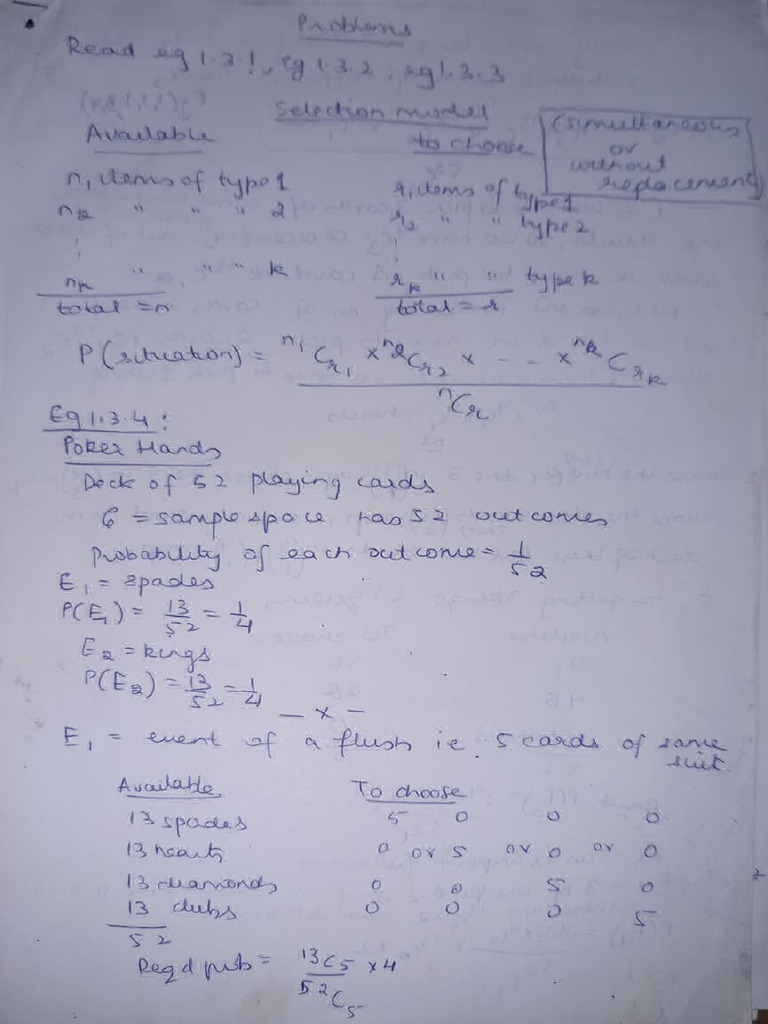 Problems
Read eg 1.3.1, eg 1.3.2, eg 1.3.3
Selection model
(simultaneous or without replacement)
Available to choose
n₁ items of type 1 r₁ items of type 1
n₂ " " " 2 r₂ " " type 2
⋮ ⋮
nₖ " " " k rₖ " " type k
total = n total = r
P(situation) = ⁿ¹Cᵣ₁ × ⁿ²Cᵣ₂ × - - - × ⁿᵏCᵣₖ
ⁿCᵣ
Eg 1.3.4 :
Poker Hands
Deck of 52 playing cards
C = sample space has 52 outcomes
Probability of each outcome = 1/52
E₁ = spades
P(E₁) = 13/52 = 1/4
E₂ = kings
P(E₂) = 13/52 = 1/4
— x —
E₁ = event of a flush ie. 5 cards of same suit.
Available To choose
13 spades 5 0 0 0
13 hearts 0 or 5 or 0 or 0
13 diamonds 0 0 5 0
13 clubs 0 0 0 5
52
Reqd prob = ¹³C₅ × 4
⁵²C₅